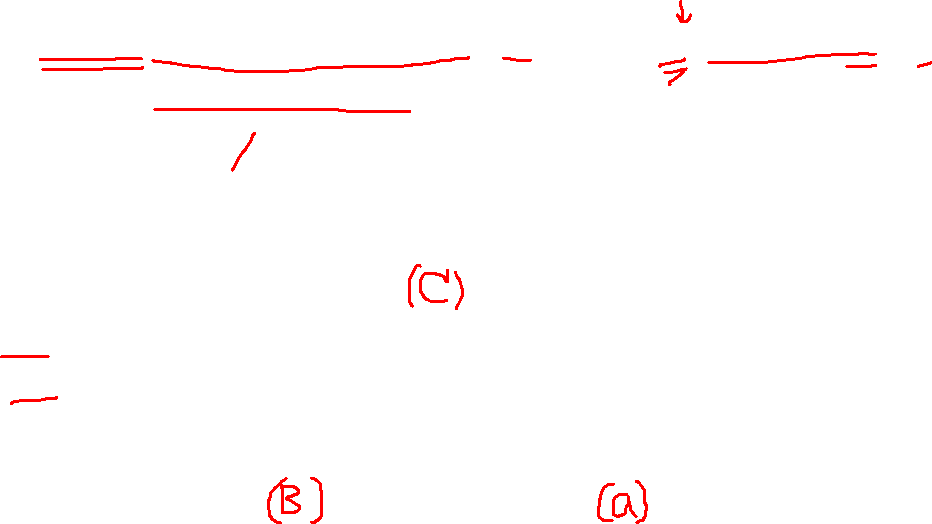 (C)
(B) (a)